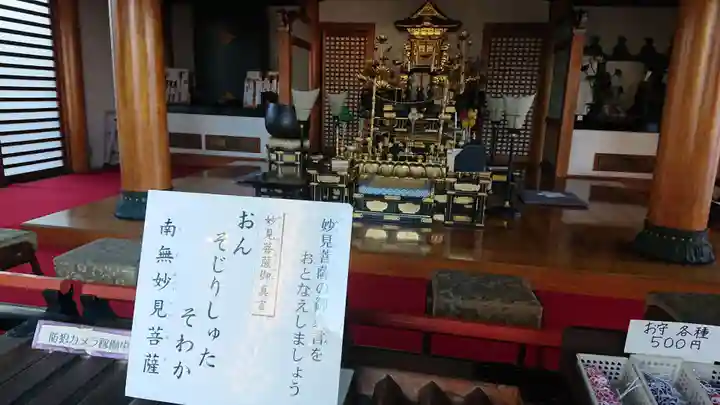 妙見菩薩の御真言を
おとなえしましょう
妙見菩薩御真言
おん
そじりしゅた
そわか
南無妙見菩薩
防犯カメラ稼働中
お守 各種
500円